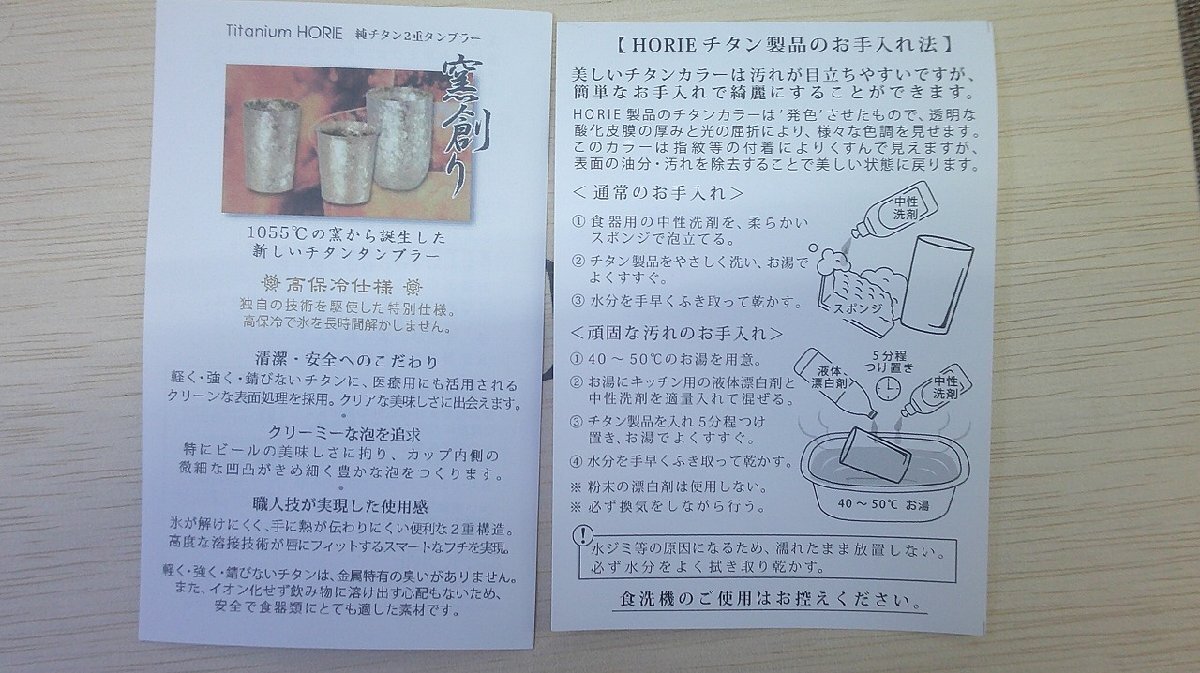 Titanium HORIE 純チタン2重タンブラー
窯創り
1055℃の窯から誕生した
新しいチタンタンブラー
高保冷仕様
独自の技術を駆使した特別仕様。
高保冷で氷を長時間解かしません。
清潔・安全へのこだわり
軽く・強く・錆びないチタンに、医療用にも活用される
クリーンな表面処理を採用。クリアな美味しさに出会えます。
クリーミーな泡を追求
特にビールの美味しさに拘り、カップ内側の
微細な凹凸がきめ細く豊かな泡をつくります。
職人技が実現した使用感
氷が解けにくく、手に熱が伝わりにくい便利な2重構造。
高度な溶接技術が唇にフィットするスマートなフチを実現。
軽く・強く・錆びないチタンは、金属特有の臭いがありません。
また、イオン化せず飲み物に溶け出す心配もないため、
安全で食器類にとても適した素材です。
【HORIEチタン製品のお手入れ法】
美しいチタンカラーは汚れが目立ちやすいですが、
簡単なお手入れで綺麗にすることができます。
HORIE製品のチタンカラーは'発色'させたもので、透明な
酸化皮膜の厚みと光の屈折により、様々な色調を見せます。
このカラーは指紋等の付着によりくすんで見えますが、
表面の油分・汚れを除去することで美しい状態に戻ります。
＜通常のお手入れ＞
① 食器用の中性洗剤を、柔らかい
スポンジで泡立てる。
② チタン製品をやさしく洗い、お湯で
よくすすぐ。
③ 水分を手早くふき取って乾かす。
中性
洗剤
スポンジ
＜頑固な汚れのお手入れ＞
① 40～50℃のお湯を用意。
② お湯にキッチン用の液体漂白剤と
中性洗剤を適量入れて混ぜる。
③ チタン製品を入れ5分程つけ
置き、お湯でよくすすぐ。
④ 水分を手早くふき取って乾かす。
※ 粉末の漂白剤は使用しない。
※ 必ず換気をしながら行う。
5分程
つけ置き
液体
漂白剤
中性
洗剤
40～50℃ お湯
!
水ジミ等の原因になるため、濡れたまま放置しない。
必ず水分をよく拭き取り乾かす。
食洗機のご使用はお控えください。